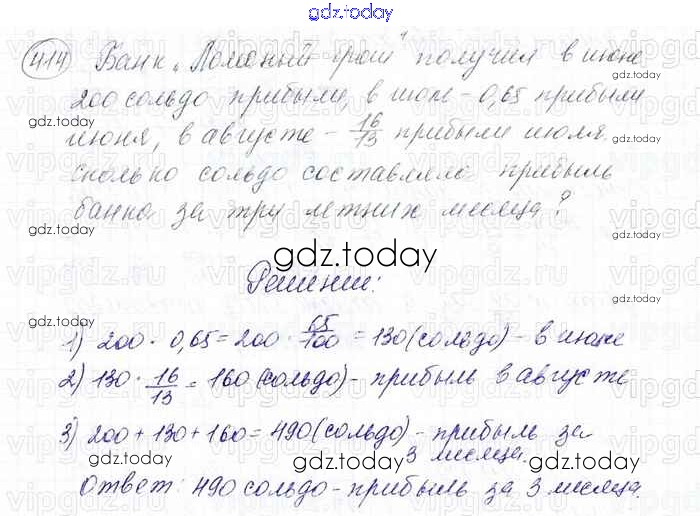 gdz.today
414 Банк „Ломаный грош" получил в июне
200 сольдо прибыли, в июле - 0,65 прибыли
июня, в августе - 16/13 прибыли июля.
Сколько сольдо составляла прибыль
банка за три летних месяца?
gdz.today
Решение:
1) 200 · 0,65 = 200 · 65/100 = 130 (сольдо) - в июле
2) 130 · 16/13 = 160 (сольдо) - прибыль в августе
3) 200 + 130 + 160 = 490 (сольдо) - прибыль за
3 месяца.
Ответ: 490 сольдо - прибыль за 3 месяца.